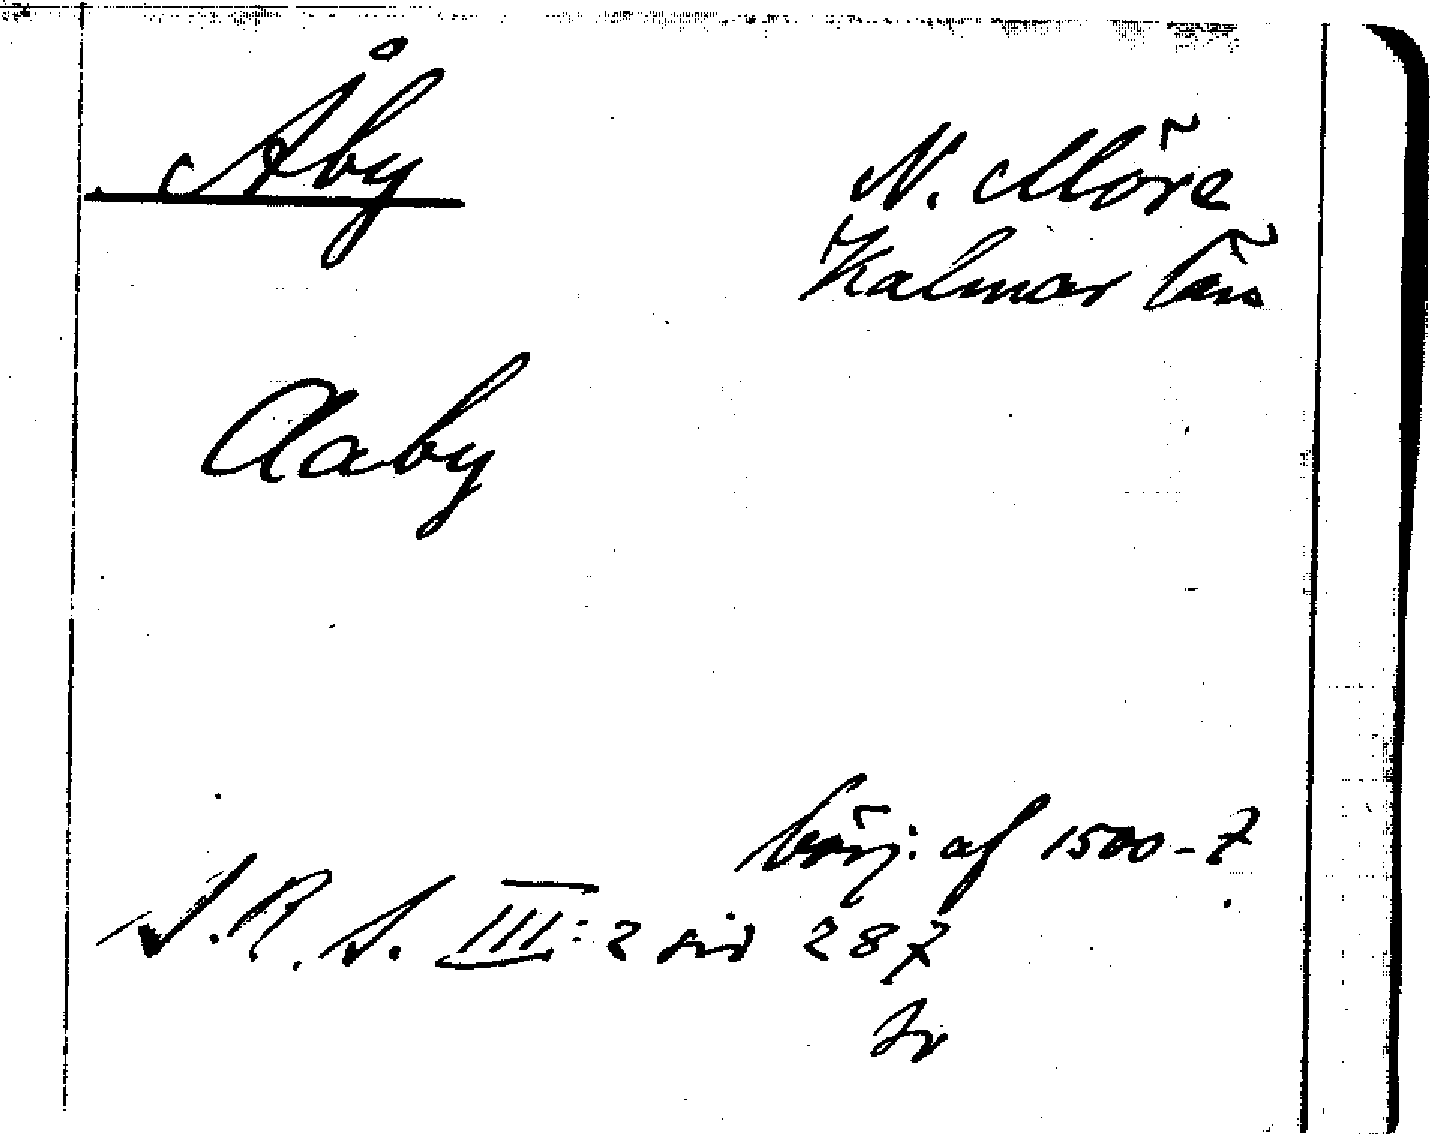 Åby
N. Möre
Kalmar län
Aaby
börj. af 1500-t.
S.R.S. III:2 sid 287
tr